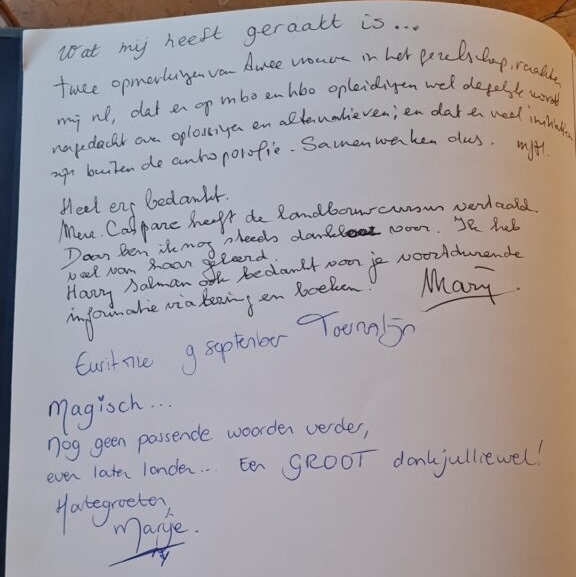 Wat mij heeft geraakt is...
twee opmerkingen van twee vrouwen in het gezelschap, raakten
mij nl, dat er op mbo en hbo opleidingen wel degelijk wordt
nagedacht over oplossingen en alternatieven; en dat er veel initiatieven
zijn buiten de antroposofie. Samenwerken dus. MJH.
Heel erg bedankt.
Mevr. heeft de landbouwcursus vertaald.
Daar ben ik nog steeds dankbaar voor. Ik heb
veel van haar geleerd.
Harry Salman ook bedankt voor je voortdurende
informatie via lezing en boeken.
9 september
Magisch...
Nog geen passende woorden verder,
even laten landen... Een GROOT dankjulliewel!
Hartegroeten,
Marije.